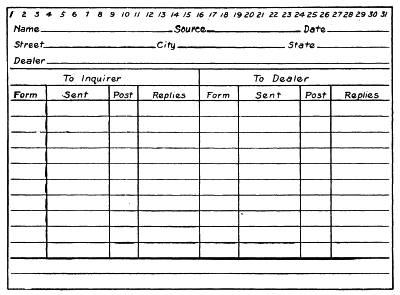 1 2 3 4 5 6 7 8 9 10 11 12 13 14 15 16 17 18 19 20 21 22 23 24 25 26 27 28 29 30 31
Name Source Date
Street City State
Dealer
To Inquirer To Dealer
Form Sent Post Replies Form Sent Post Replies